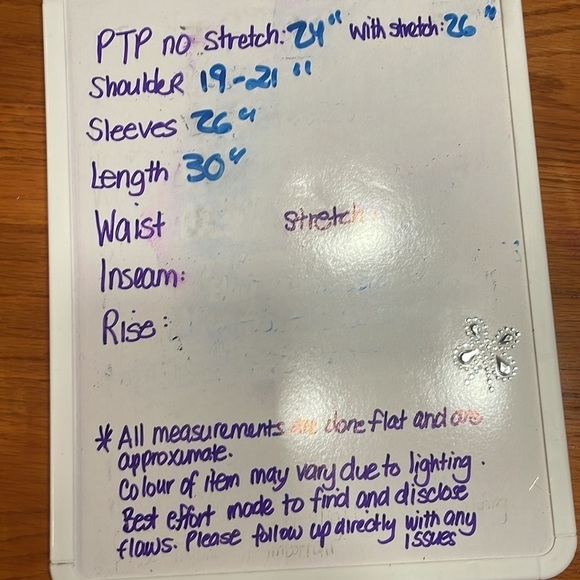 PTP no stretch: 24" with stretch: 26"
ShouldeR 19-21"
Sleeves 26"
Length 30"
Waist stretch
Inseam:
Rise:
* All measurements are done flat and are
approxumate.
Colour of item may vary due to lighting.
Best effort made to find and disclose
flaws. Please follow up directly with any
issues